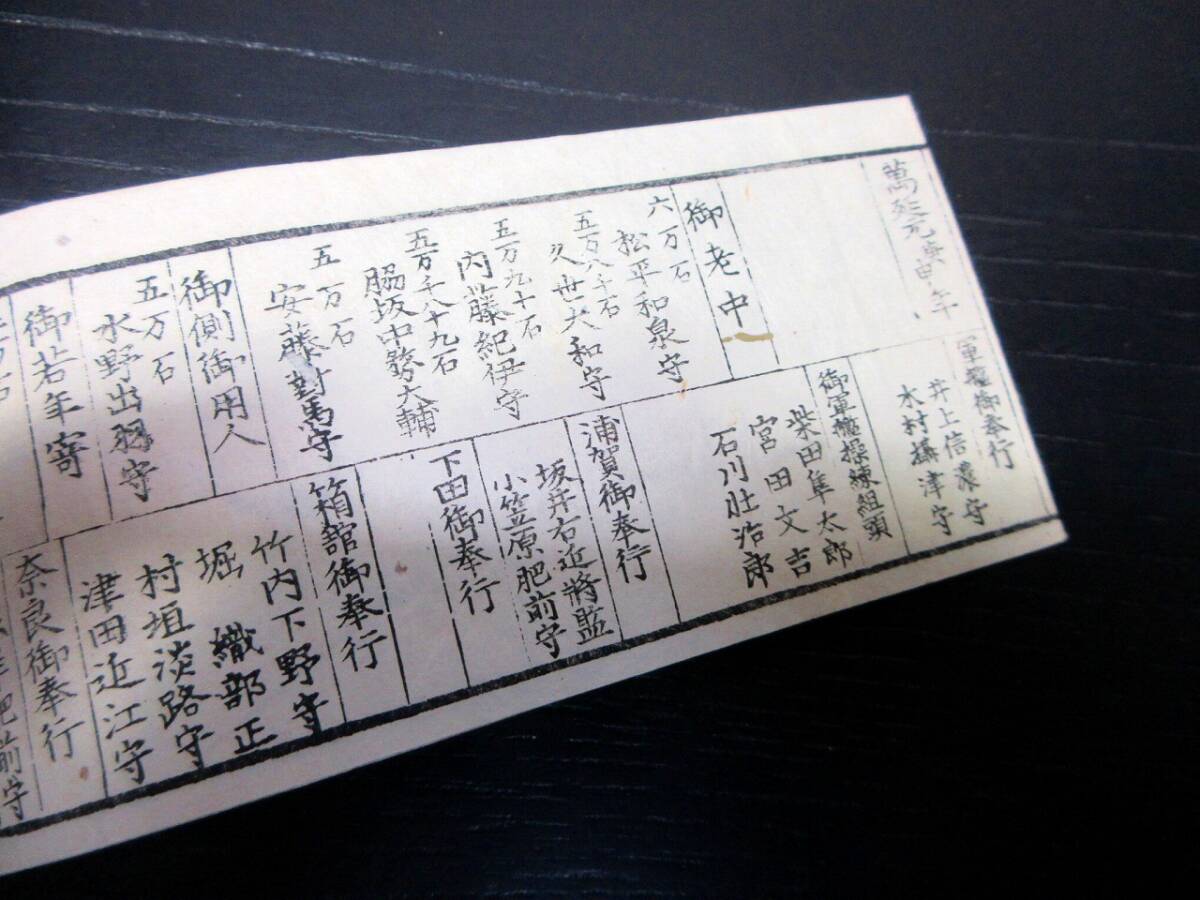 萬延元庚申年
御老中
六万石
松平和泉守
五万八千石
久世大和守
五万九十石
内藤紀伊守
五万千八十九石
脇坂中務大輔
五万石
安藤對馬守
御側御用人
五万石
水野出羽守
御若年寄
軍艦御奉行
井上信濃守
木村攝津守
御軍艦操練組頭
柴田隼太郎
宮田文吉
石川壮浩郎
浦賀御奉行
坂井右近將監
小笠原肥前守
下田御奉行
箱舘御奉行
竹内下野守
堀織部正
村垣淡路守
津田近江守
奈良御奉行
肥前守